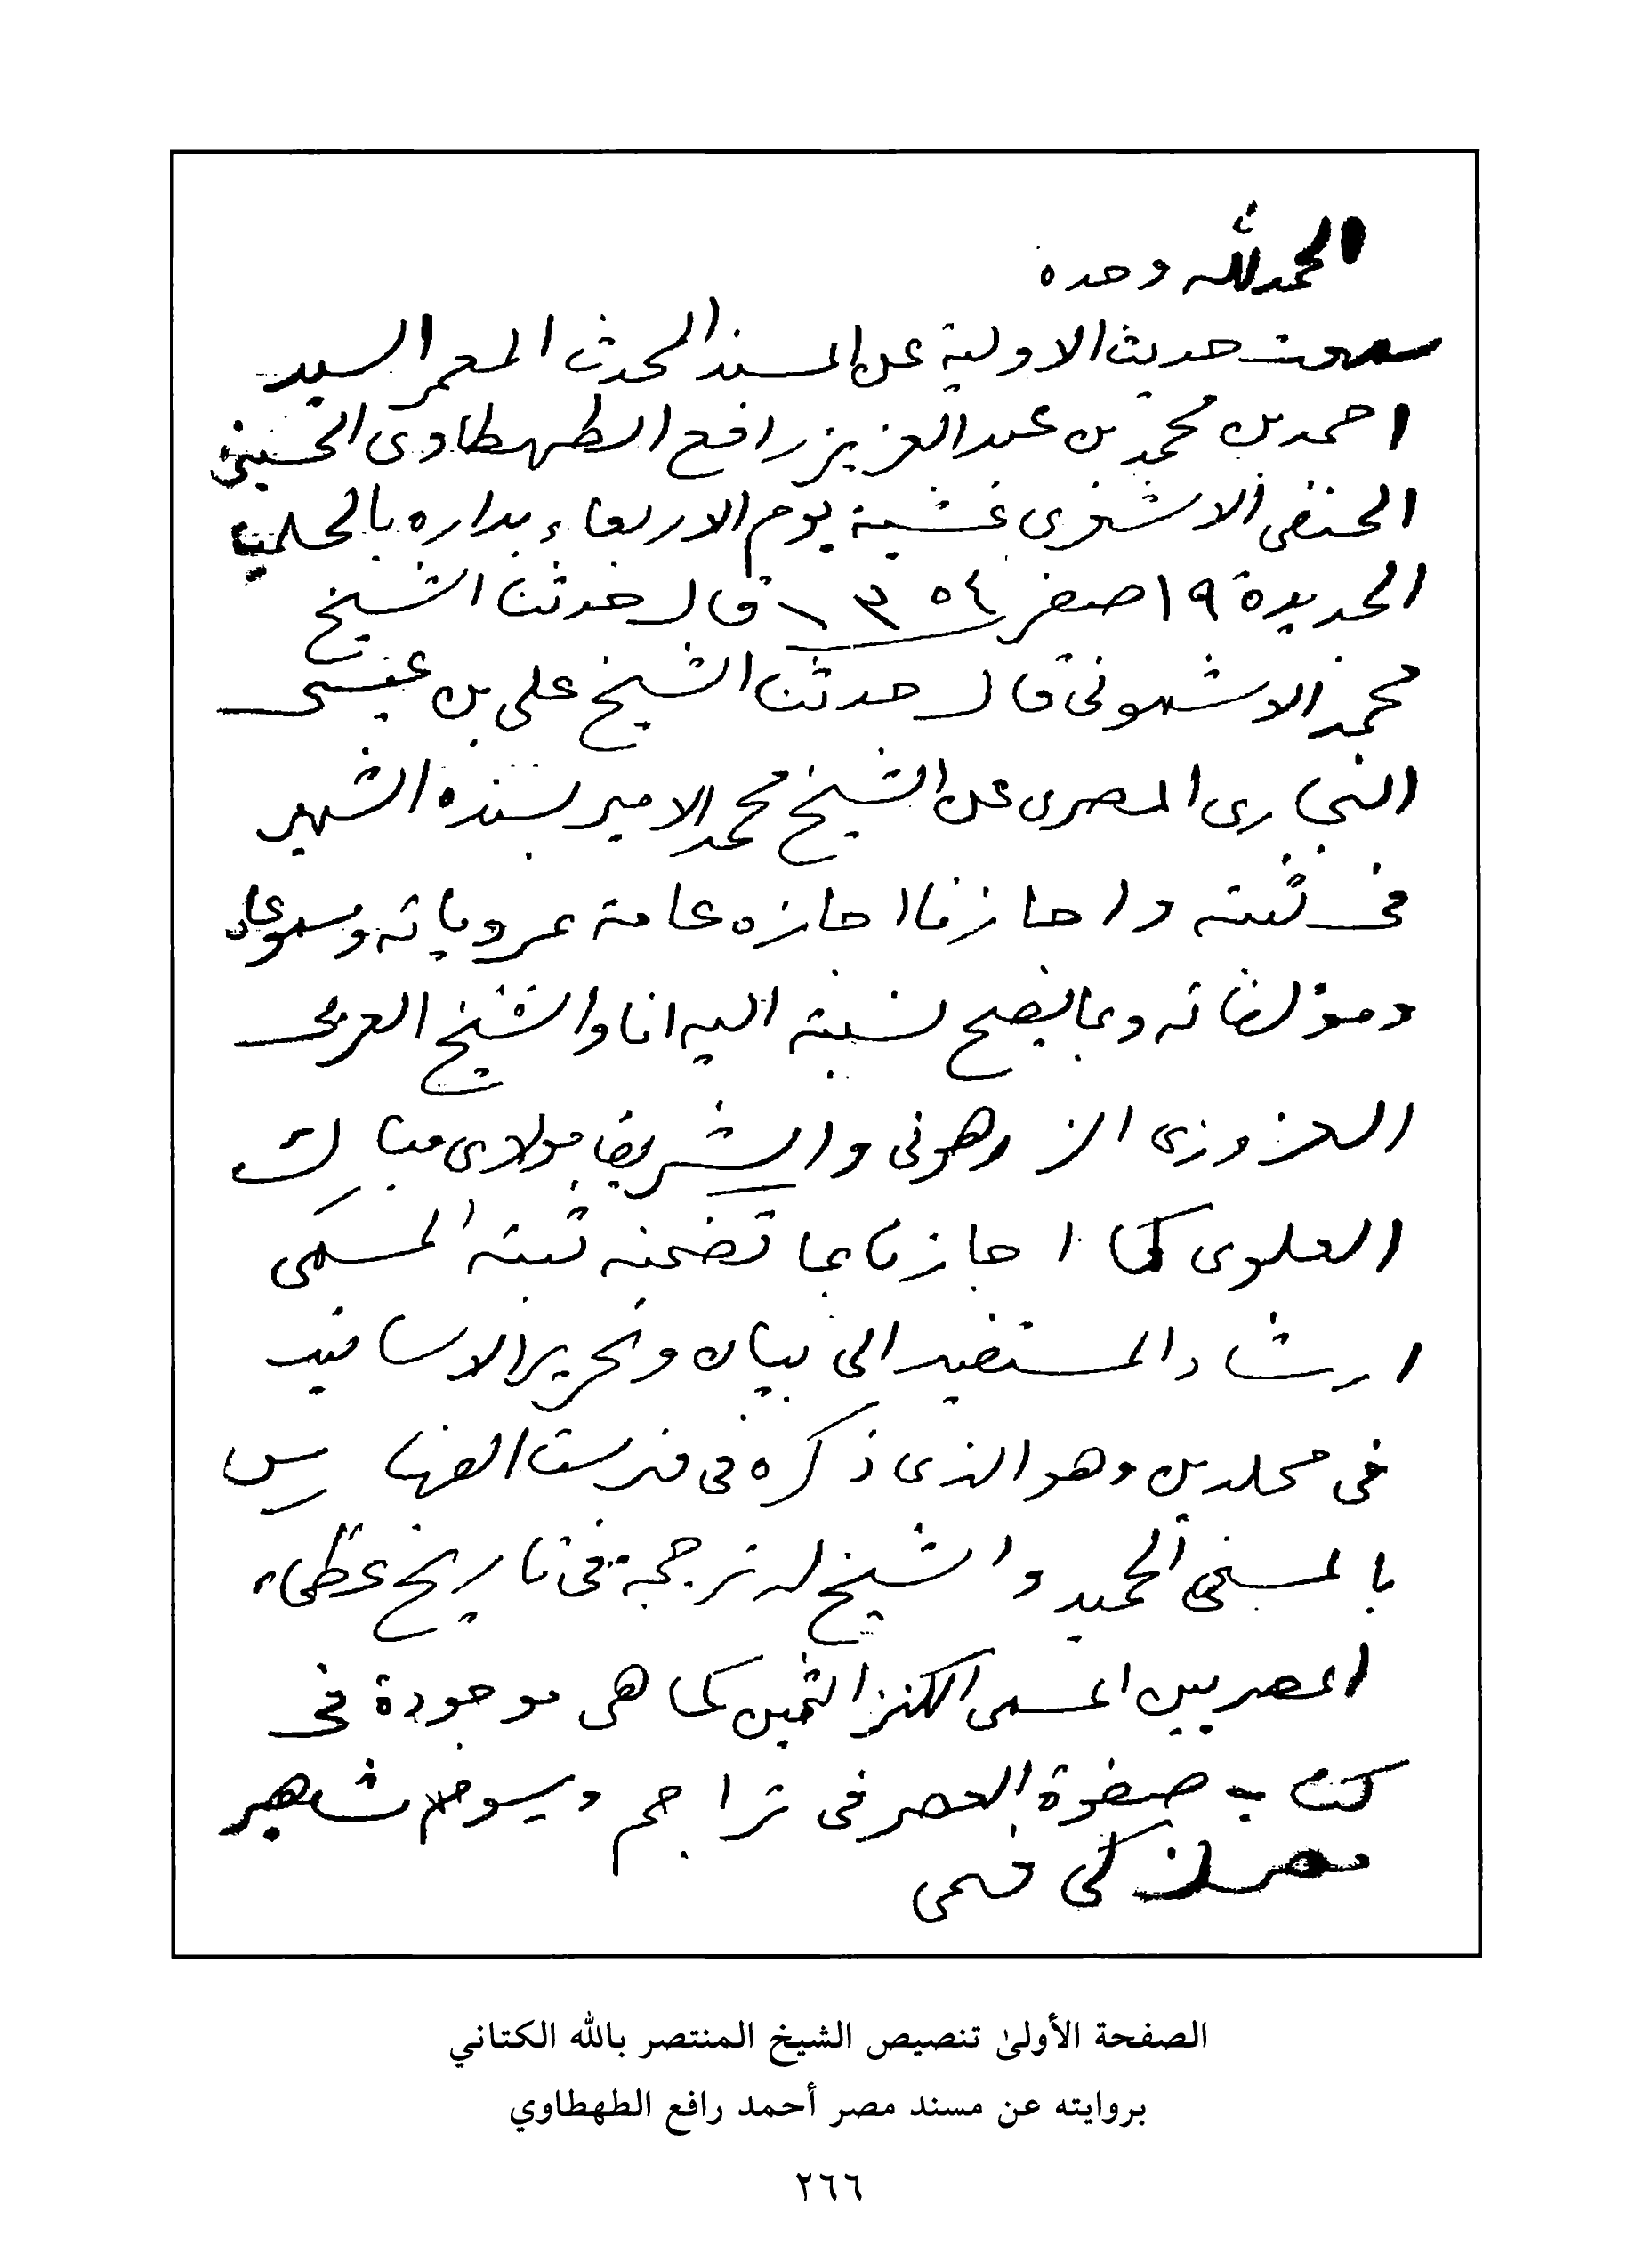 الحمد لله وحده
سمعت حديث الاولية عن المسند المحدث المعمر السيد
احمد بن محمد بن عبد العزيز رافع الطهطاوى الحسينى
الحنفى الاشعرى عشية يوم الاربعاء بداره بالحلمية
الجديدة ١٩ صفر ١٣٥٤ قال حدثنا الشيخ
محمد الاشمونى قال حدثنا الشيخ على بن عيسى
النجارى المصرى عن الشيخ محمد الامير بسنده الشهير
فى ثبته واجازنا اجازه عامة بمروياته ومسموعاته
ومؤلفاته وبما يصح نسبته اليه انا والشيخ العربى
العزوزى الزرهونى والشريف مولاى مبارك
العلوى كما اجازنا بما تضمنه ثبته المسمى
ارشاد المستفيد الى بيان وتحرير الاسانيد
فى مجلدين وهو الذى ذكره فى فهرست الفهارس
بالمسعى الحميد والشيخ له ترجمة فى تاريخ عظماء
المصريين المسمى الكنز الثمين كما هى موجودة فى
كتاب صفوة العصر فى تراجم ورسوم مشاهير
مصر لزكى فهمى
الصفحة الأولىٰ تنصيص الشيخ المنتصر بالله الكتاني
بروايته عن مسند مصر أحمد رافع الطهطاوي
٢٦٦